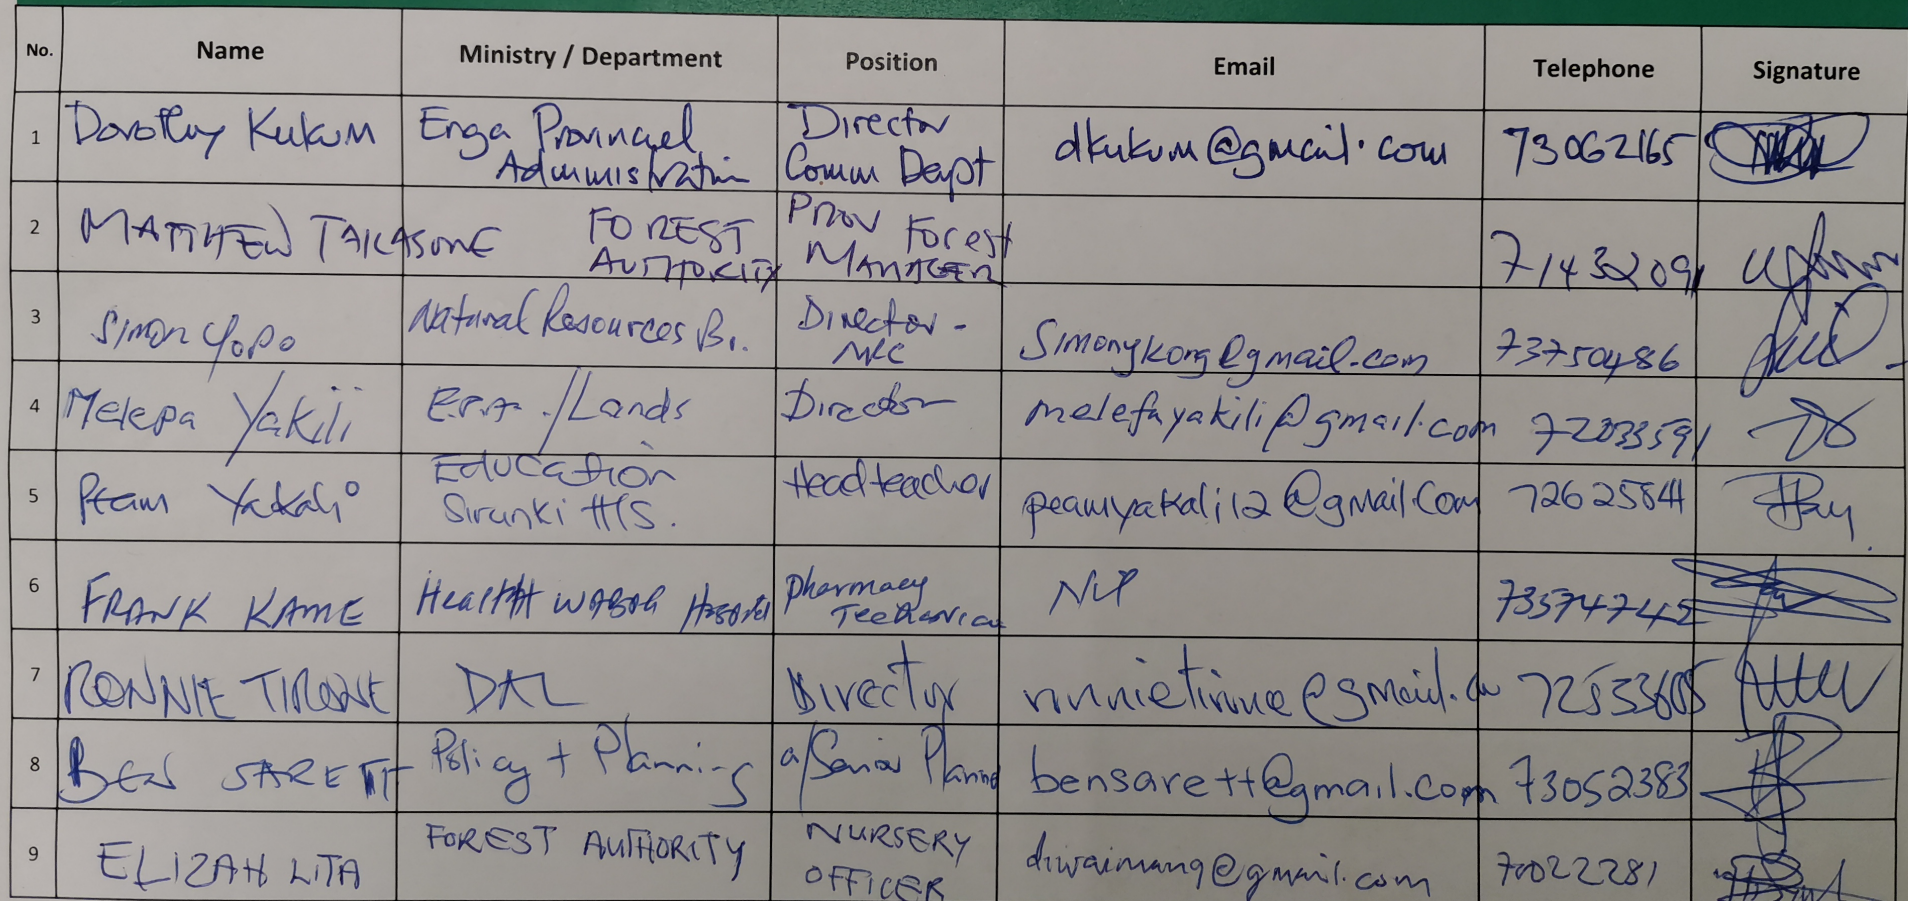 No. Name Ministry / Department Position Email Telephone Signature
1 Dorothy Kukum Enga Provincial Administration Director Comm Dept dkukum@gmail.com 73062165
2 MATTHEW TAKASONE FOREST AUTHORITY Prov Forest MANAGER 71432091
3 Simon Yopo Natural Resources Br. Director - simonykong@gmail.com 73750486
4 Melepa Yakili E.P.A. /Lands Director melefayakili@gmail.com 72033591
5 Peam Yakali Education Sirunki H/S. Headteacher peamyakali12@gmail.com
6 FRANK KAME Health WABAG Hospital pharmacy Nil 73574742
7 RONNIE TIRONE DAL Director 72533605
8 BEN SARETT Policy + Planning a/Senior Planner bensarett@gmail.com 73052383
9 ELIZAH LITA FOREST AUTHORITY NURSERY OFFICER diwaimang@gmail.com 70022281